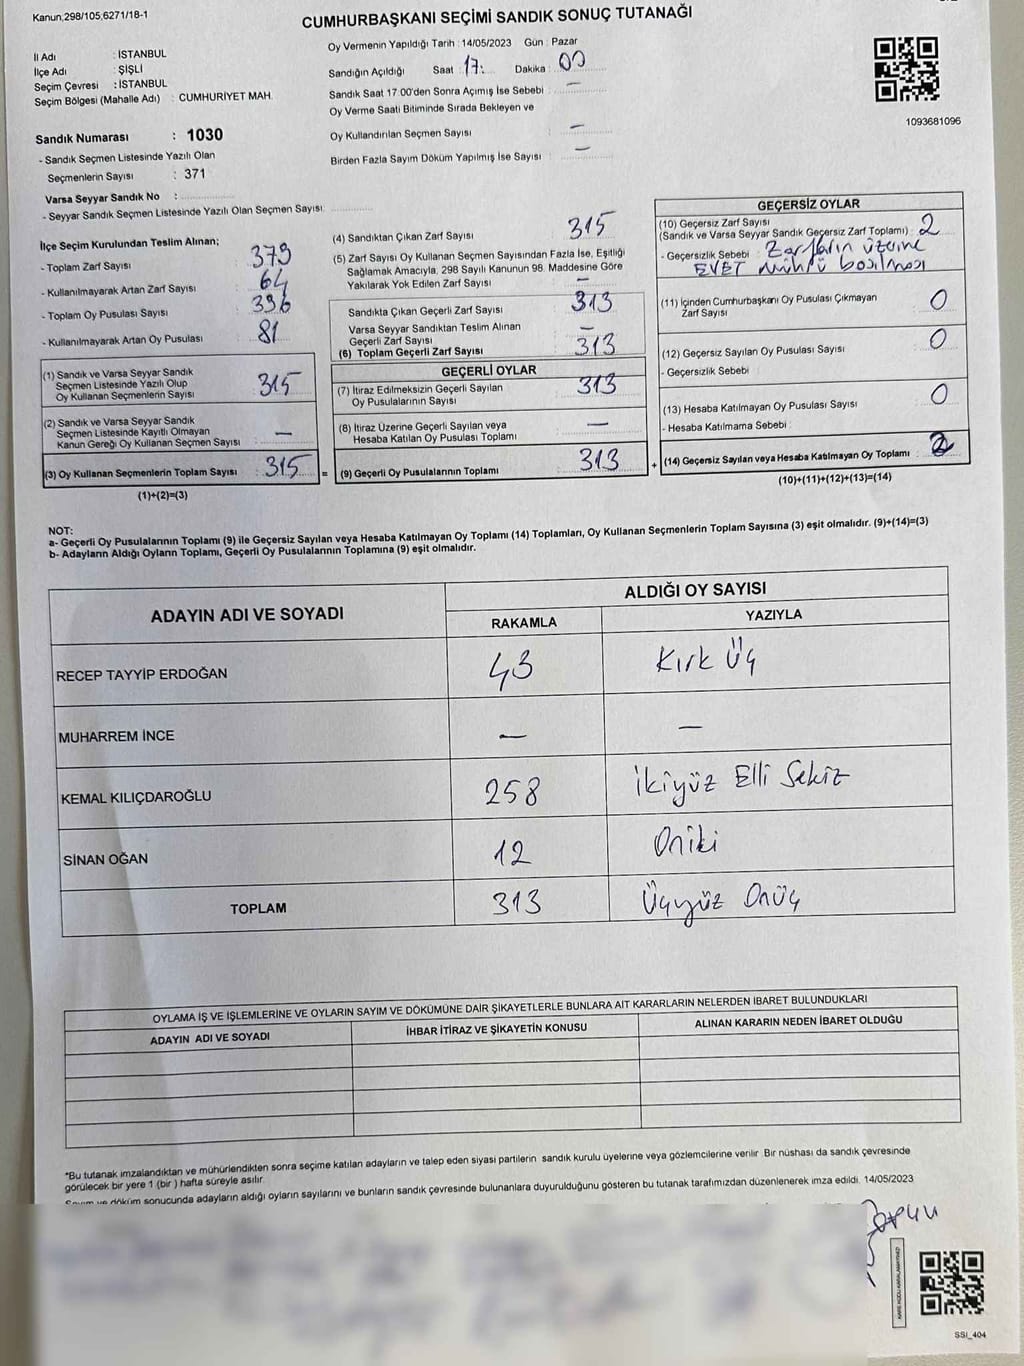 Kanun;298/105,6271/18-1
CUMHURBAŞKANI SEÇİMİ SANDIK SONUÇ TUTANAĞI
İl Adı : İSTANBUL
İlçe Adı : ŞİŞLİ
Seçim Çevresi : İSTANBUL
Seçim Bölgesi (Mahalle Adı) : CUMHURİYET MAH.
Oy Vermenin Yapıldığı Tarih : 14/05/2023 Gün : Pazar
Sandığın Açıldığı Saat : 17: Dakika : 00
Sandık Saat 17:00'den Sonra Açımış İse Sebebi : —
Oy Verme Saati Bitiminde Sırada Bekleyen ve
Oy Kullandırılan Seçmen Sayısı : —
Birden Fazla Sayım Döküm Yapılmış İse Sayısı : —
1093681096
Sandık Numarası : 1030
- Sandık Seçmen Listesinde Yazılı Olan
Seçmenlerin Sayısı : 371
Varsa Seyyar Sandık No :
- Seyyar Sandık Seçmen Listesinde Yazılı Olan Seçmen Sayısı:
İlçe Seçim Kurulundan Teslim Alınan;
- Toplam Zarf Sayısı : 379
- Kullanılmayarak Artan Zarf Sayısı : 64
- Toplam Oy Pusulası Sayısı : 396
- Kullanılmayarak Artan Oy Pusulası : 81
(1) Sandık ve Varsa Seyyar Sandık
Seçmen Listesinde Yazılı Olup
Oy Kullanan Seçmenlerin Sayısı : 315
(2) Sandık ve Varsa Seyyar Sandık
Seçmen Listesinde Kayıtlı Olmayan
Kanun Gereği Oy Kullanan Seçmen Sayısı : —
(3) Oy Kullanan Seçmenlerin Toplam Sayısı : 315 =
(1)+(2)=(3)
(4) Sandıktan Çıkan Zarf Sayısı : 315
(5) Zarf Sayısı Oy Kullanan Seçmen Sayısından Fazla İse, Eşitliği
Sağlamak Amacıyla, 298 Sayılı Kanunun 98. Maddesine Göre
Yakılarak Yok Edilen Zarf Sayısı : —
Sandıkta Çıkan Geçerli Zarf Sayısı : 313
Varsa Seyyar Sandıktan Teslim Alınan
Geçerli Zarf Sayısı : —
(6) Toplam Geçerli Zarf Sayısı : 313
GEÇERLİ OYLAR
(7) İtiraz Edilmeksizin Geçerli Sayılan
Oy Pusulalarının Sayısı : 313
(8) İtiraz Üzerine Geçerli Sayılan veya
Hesaba Katılan Oy Pusulası Toplamı : —
(9) Geçerli Oy Pusulalarının Toplamı : 313 +
GEÇERSİZ OYLAR
(10) Geçersiz Zarf Sayısı
(Sandık ve Varsa Seyyar Sandık Geçersiz Zarf Toplamı) : 2
- Geçersizlik Sebebi : Zarfların üzerine
EVET mührü basılması
(11) İçinden Cumhurbaşkanı Oy Pusulası Çıkmayan
Zarf Sayısı : 0
(12) Geçersiz Sayılan Oy Pusulası Sayısı : 0
- Geçersizlik Sebebi :
(13) Hesaba Katılmayan Oy Pusulası Sayısı : 0
- Hesaba Katılmama Sebebi :
(14) Geçersiz Sayılan veya Hesaba Katılmayan Oy Toplamı : 2
(10)+(11)+(12)+(13)=(14)
NOT:
a- Geçerli Oy Pusulalarının Toplamı (9) ile Geçersiz Sayılan veya Hesaba Katılmayan Oy Toplamı (14) Toplamları, Oy Kullanan Seçmenlerin Toplam Sayısına (3) eşit olmalıdır. (9)+(14)=(3)
b- Adayların Aldığı Oyların Toplamı, Geçerli Oy Pusulalarının Toplamına (9) eşit olmalıdır.
ADAYIN ADI VE SOYADI
ALDIĞI OY SAYISI
RAKAMLA YAZIYLA
RECEP TAYYİP ERDOĞAN 43 Kırk Üç
MUHARREM İNCE — —
KEMAL KILIÇDAROĞLU 258 İkiyüz Elli Sekiz
SİNAN OĞAN 12 Oniki
TOPLAM 313 Üçyüz Onüç
OYLAMA İŞ VE İŞLEMLERİNE VE OYLARIN SAYIM VE DÖKÜMÜNE DAİR ŞİKAYETLERLE BUNLARA AİT KARARLARIN NELERDEN İBARET BULUNDUKLARI
ADAYIN ADI VE SOYADI İHBAR İTİRAZ VE ŞİKAYETİN KONUSU ALINAN KARARIN NEDEN İBARET OLDUĞU
*Bu tutanak imzalandıktan ve mühürlendikten sonra seçime katılan adayların ve talep eden siyasi partilerin sandık kurulu üyelerine veya gözlemcilerine verilir. Bir nüshası da sandık çevresinde
görülecek bir yere 1 (bir) hafta süreyle asılır.
Sayım ve döküm sonucunda adayların aldığı oyların sayılarını ve bunların sandık çevresinde bulunanlara duyurulduğunu gösteren bu tutanak tarafımızdan düzenlenerek imza edildi. 14/05/2023
SSI_404